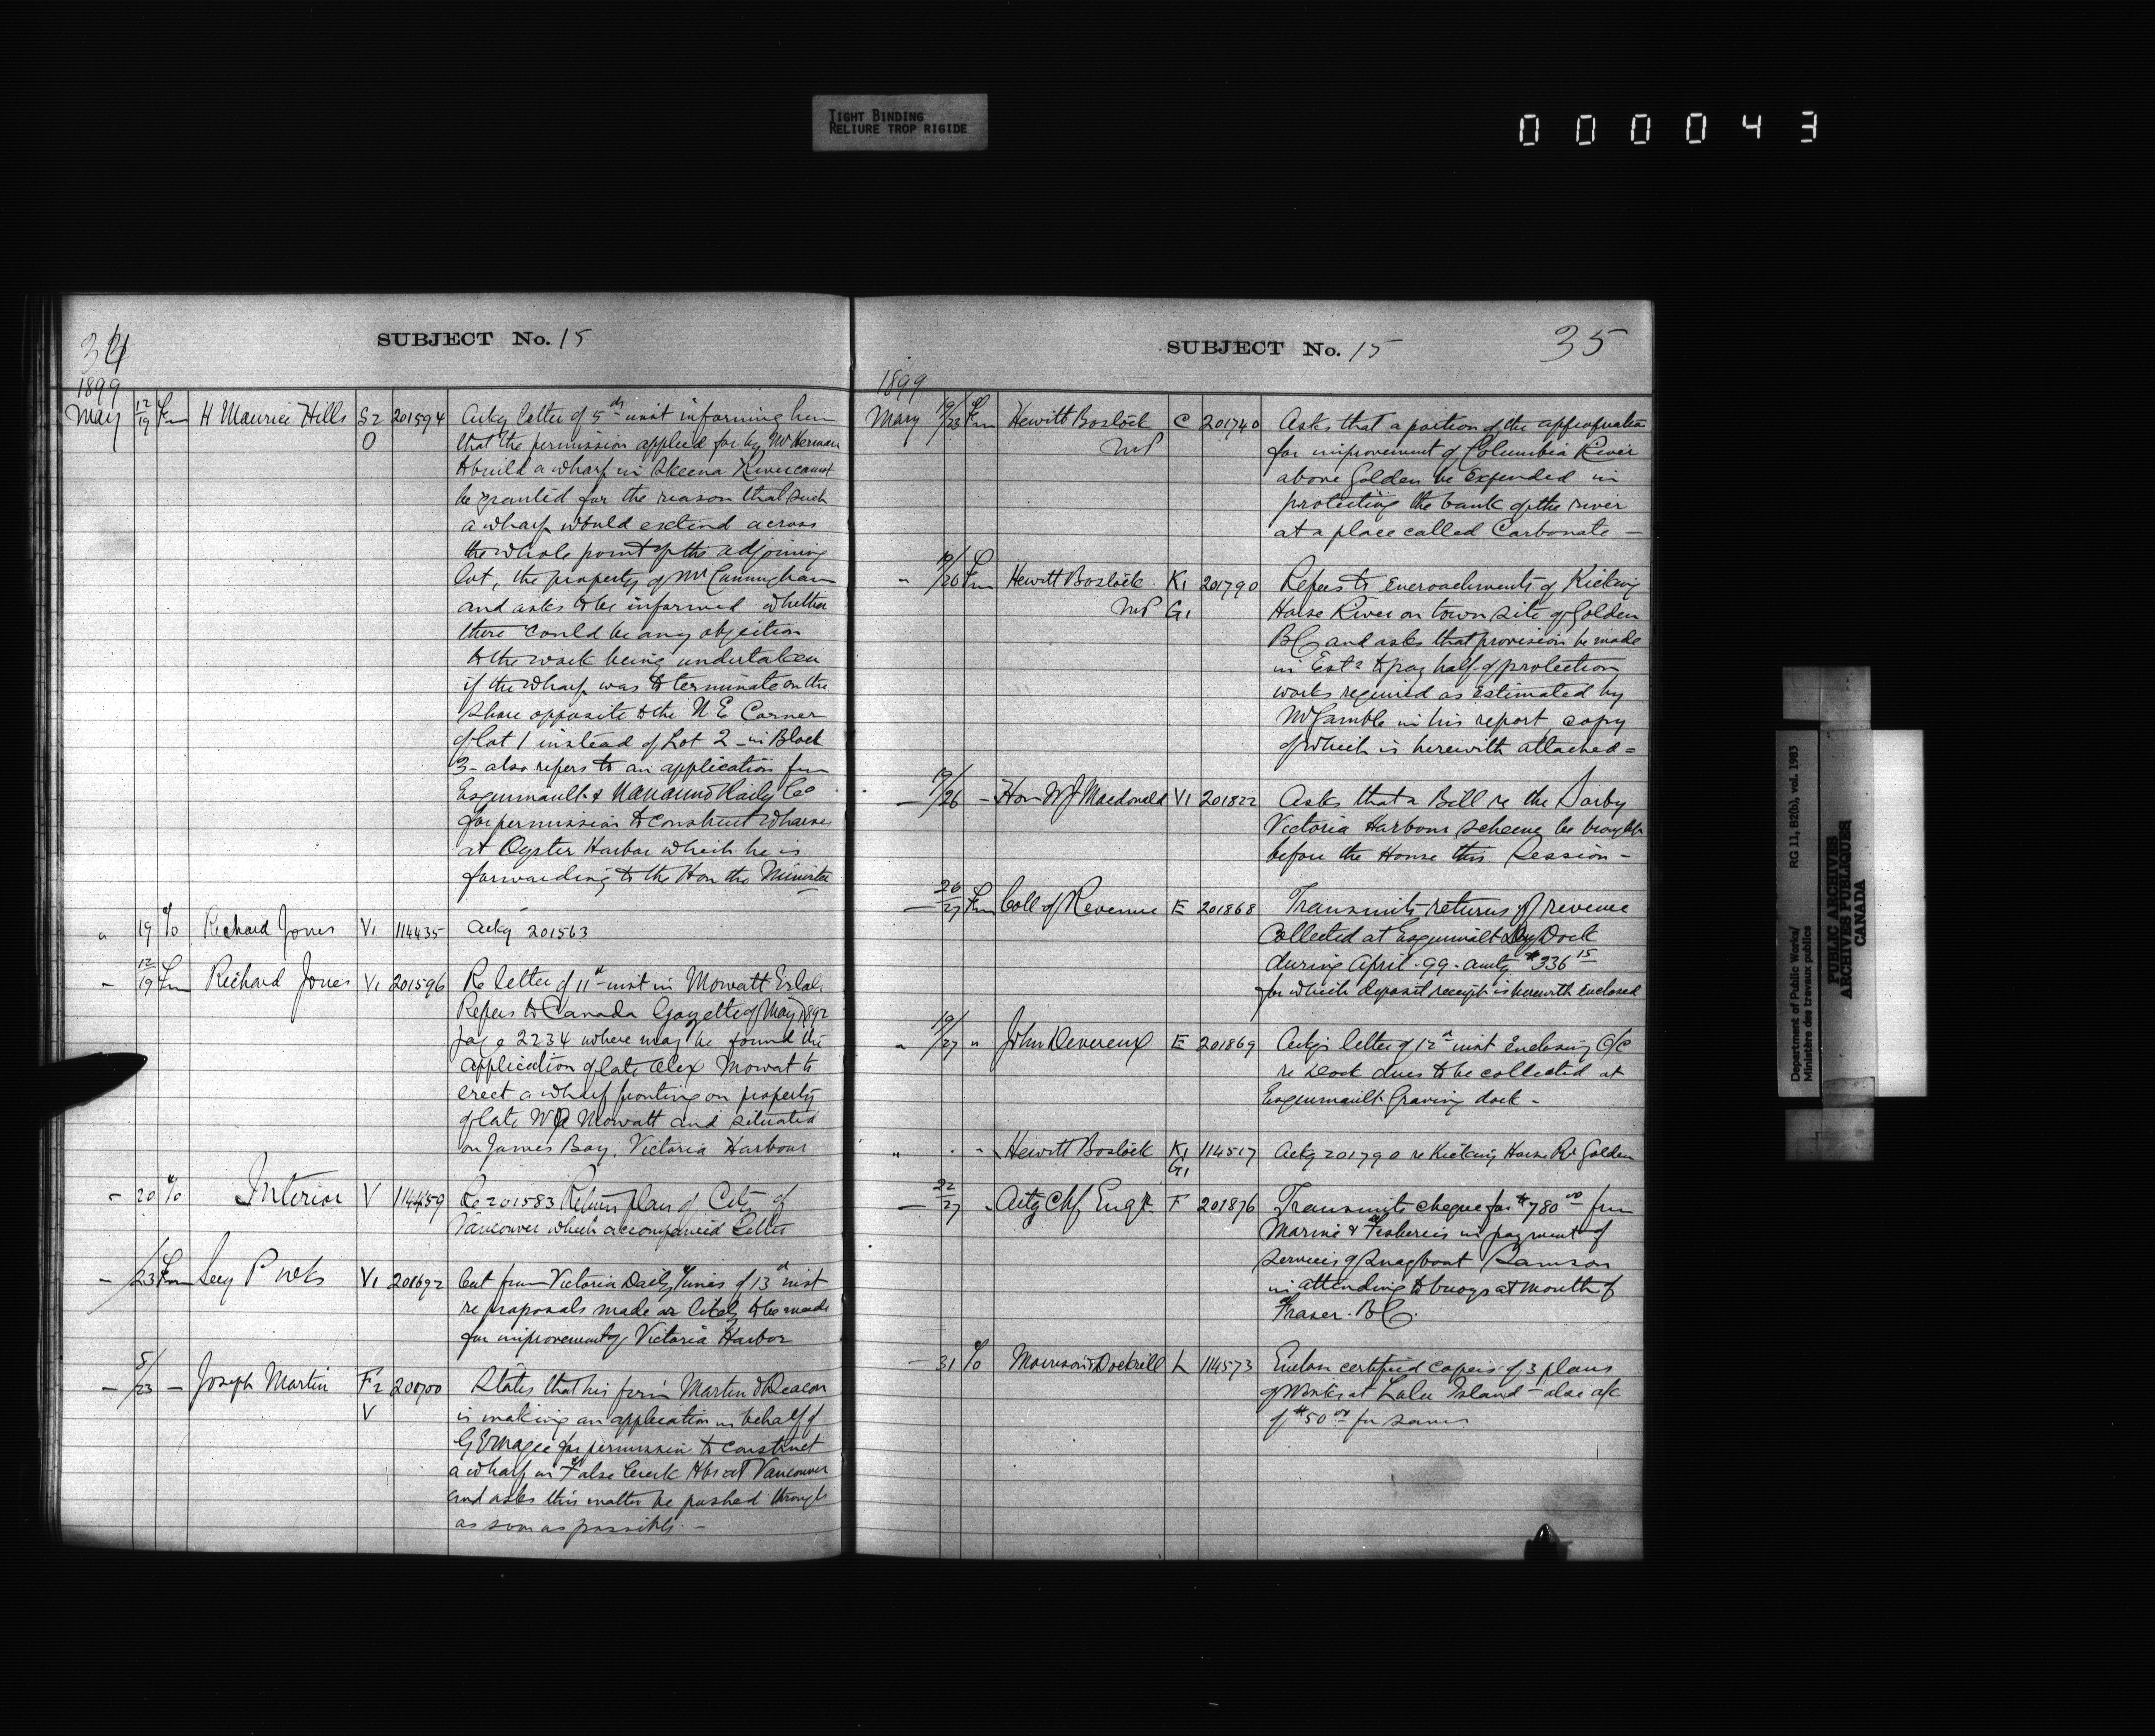 TIGHT BINDING
RELIURE TROP RIGIDE
000043
34
SUBJECT No. 15
1899
May 12/19 Fm H Maurice Hills S2 201594 Ackg letter of 5th inst informing him
O that the permission applied for by Mr Herman
to build a wharf in Skeena River cannot
be granted for the reason that such
a wharf would extend across
the whole point of the adjoining
lot, the property of Mr Cunningham
and asks to be informed whether
there could be any objection
to the work being undertaken
if the wharf was to terminate on the
shore opposite to the N E Corner
of lot 1 instead of Lot 2 - in Block
3 - also refers to an application fm
Esquimault & Nanaimo Raily Co
for permission to construct wharves
at Oyster Harbor which he is
forwarding to the Hon the Minister
" 19 To Richard Jones V1 114435 Ackg 201563
- 12/19 Fm Richard Jones V1 201596 Re letter of 11th inst in Mowatt
Refers to Canada Gazette of May 1892
page 2234 where may be found the
application of late Alex Mowat to
erect a wharf fronting on property
of late W R Mowatt and situated
on James Bay, Victoria Harbour
- 20 To Interior V 114459 Re 201583 Return plan of City of
Vancouver which accompanied letter
- /23 Fm Secy P Wks V1 201692 Cut from Victoria Daily Times of 13th inst
re proposals made or likely to be made
for improvement of Victoria Harbor
- 5/23 - Joseph Martin F2 201700 States that his firm Martin & Deacon
V is making an application on behalf of
G E Magee for permission to construct
a wharf in False Creek Hbr at Vancouver
and asks this matter be pushed through
as soon as possible -
SUBJECT No. 15
35
1899
Mary 19/23 Fm Hewitt Bostock C 201740 Asks that a portion of the appropriation
MP for improvement of Columbia River
above Golden be Expended in
protecting the bank of the river
at a place called Carbonate -
" 19/26 Fm Hewitt Bostock K1 201790 Refers to encroachments of Kicking
MP G1 Horse River on town site of Golden
BC and asks that provision be made
in Ests to pay half of protection
works required as Estimated by
Mr Gamble in his report copy
of which is herewith attached =
- 19/26 - Hon W J Macdonald V1 201822 Asks that a Bill re the Sorby
Victoria Harbour scheme be brought
before the House this Session -
- 26/27 Fm Coll of Revenue E 201868 Transmits returns of revenue
collected at Esquimalt Dry Dock
during April . 99 - amtg $336 15
for which deposit receipt is herewith Enclosed
" 19/27 " John Devereux E 201869 Ackgs letter of 12th inst Enclosing O/C
re Dock dues to be collected at
Esquimault Graving dock -
" " - Hewitt Bostock K1 114517 Ackg 201790 re Kicking Horse Rr Golden
G1
- 22/27 - Actg Chf Engr F 201876 Transmits cheque for $780 00 from
Marine & Fisheries in payment of
services of Snagboat Samson
in attending to buoys at mouth of
Fraser . BC .
- 31 To Morrison & Dockrill L 114573 Enclose certified copies of 3 plans
of Works at Lulu Island - also a/c
of $50 00 for same
Department of Public Works/
Ministère des travaux publics
RG 11, B2(b), vol. 1983
PUBLIC ARCHIVES
ARCHIVES PUBLIQUES
CANADA